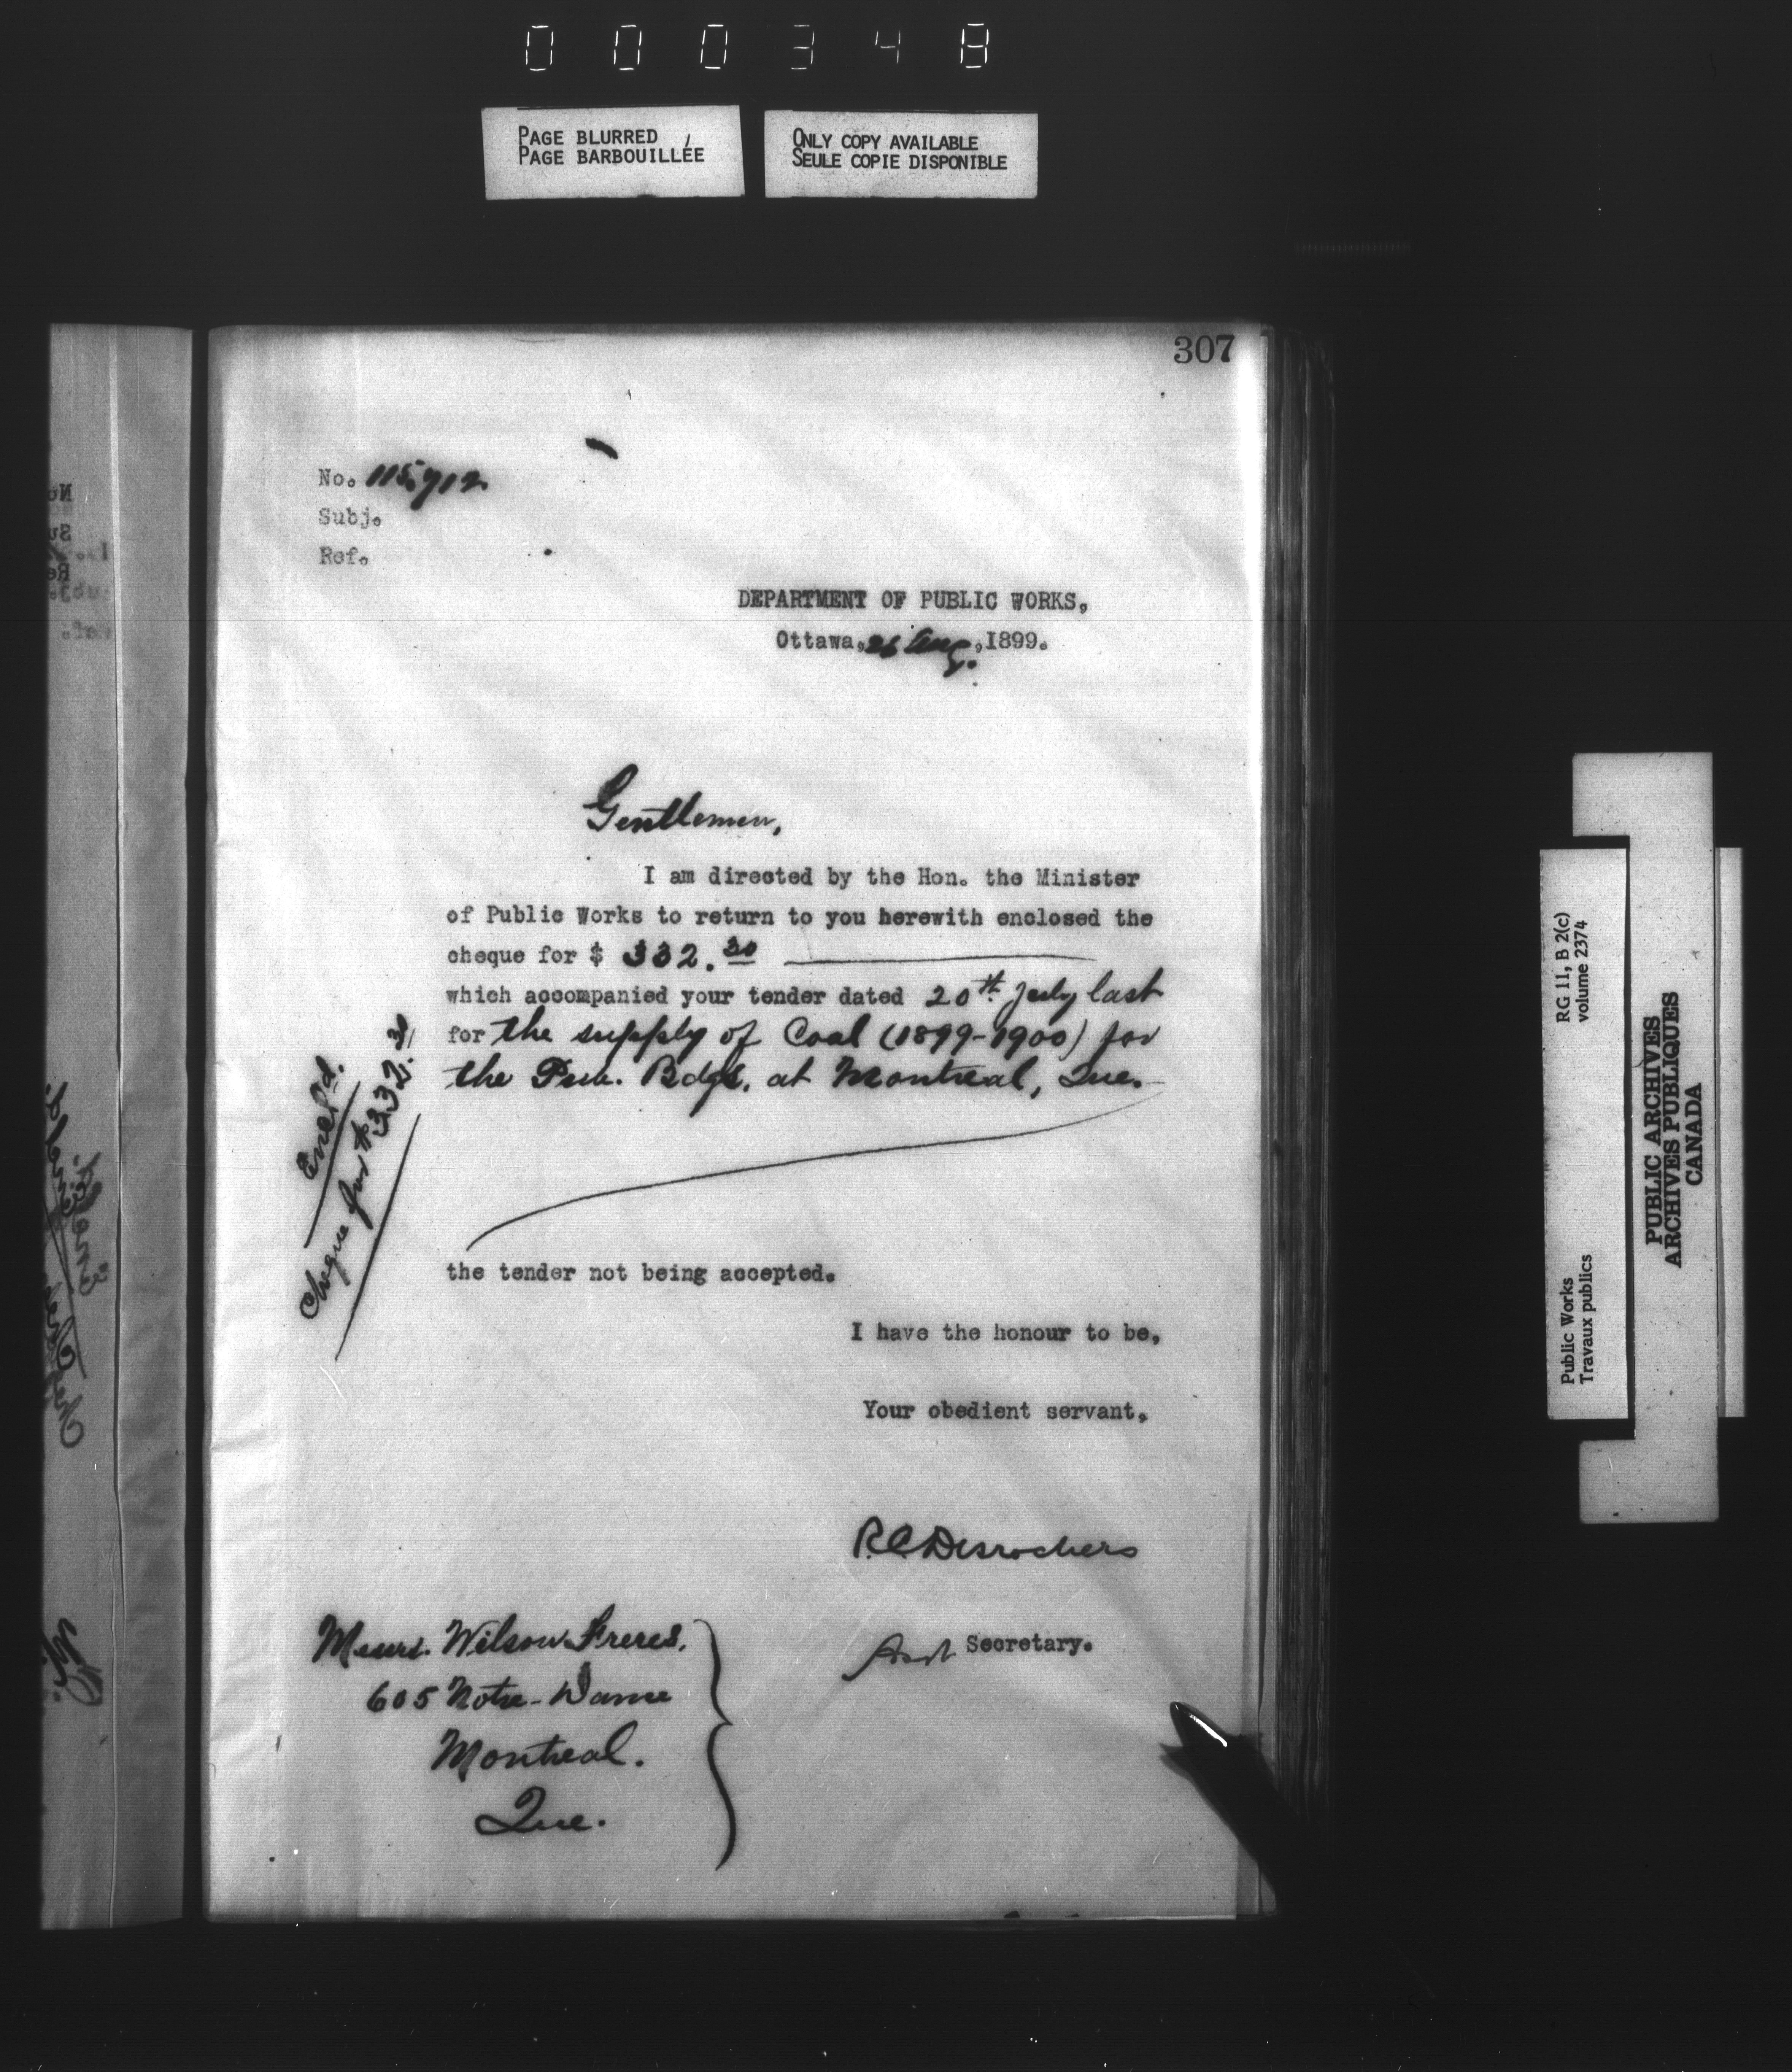 000348
PAGE BLURRED
PAGE BARBOUILLÉE
ONLY COPY AVAILABLE
SEULE COPIE DISPONIBLE
307
No. 115,712
Subj.
Ref.
DEPARTMENT OF PUBLIC WORKS,
Ottawa, 26 Aug., 1899.
Gentlemen,
I am directed by the Hon. the Minister
of Public Works to return to you herewith enclosed the
cheque for $ 332.30
which accompanied your tender dated 20th July last
for the supply of Coal (1899-1900) for
the Pub. Bdgs. at Montreal, Que.
Encl'd.
Cheque for $332.30
the tender not being accepted.
I have the honour to be,
Your obedient servant,
R.C. Desrochers
Asst Secretary.
Messrs. Wilson Freres,
605 Notre-Dame
Montreal.
Que.
RG 11, B 2(c)
volume 2374
Public Works
Travaux publics
PUBLIC ARCHIVES
ARCHIVES PUBLIQUES
CANADA